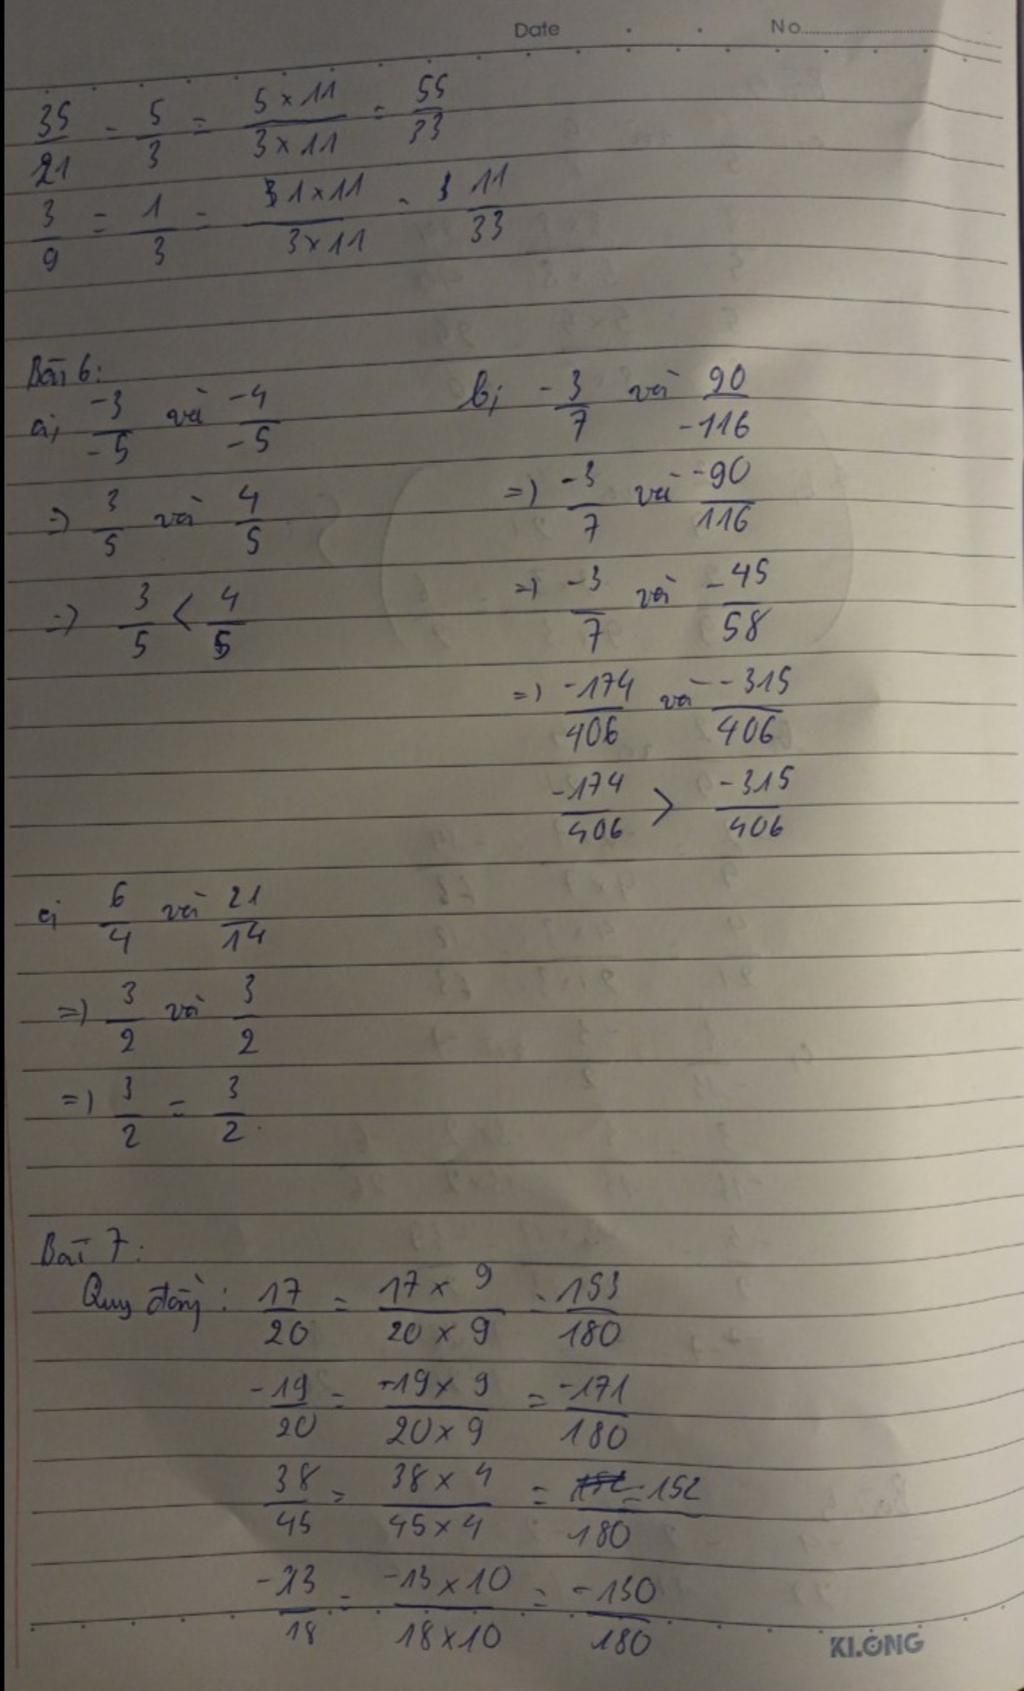 Date No
35/21 = 5/3 = 5 × 11 / 3 × 11 = 55/33
3/9 = 1/3 = 1 × 11 / 3 × 11 = 11/33
Bài 6:
a; -3/-5 và -4/-5
=> 3/5 và 4/5
=> 3/5 < 4/5
b; -3/7 và 90/-116
=> -3/7 và -90/116
=> -3/7 và -45/58
=> -174/406 và -315/406
-174/406 > -315/406
c; 6/4 và 21/14
=> 3/2 và 3/2
=> 3/2 = 3/2
Bài 7:
Quy đồng: 17/20 = 17 × 9 / 20 × 9 = 153/180
-19/20 = -19 × 9 / 20 × 9 = -171/180
38/45 = 38 × 4 / 45 × 4 = 152/180
-13/18 = -13 × 10 / 18 × 10 = -130/180
KLONG